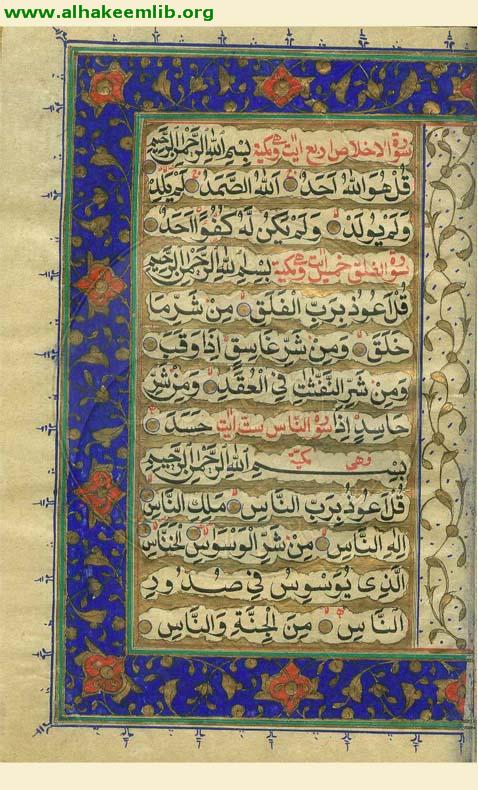 www.alhakeemlib.org
سورة الاخلاص اربع ايات وهى مكية بسم الله الرحمن الرحيم
قُلْ هُوَ اللهُ اَحَدٌ اَللهُ الصَّمَدُ لَمْ يَلِدْ
وَلَمْ يُولَدْ وَلَمْ يَكُنْ لَهُ كُفُوًا اَحَدٌ
سورة الفلق خمس ايات وهى مكية بسم الله الرحمن الرحيم
قُلْ اَعُوذُ بِرَبِّ الْفَلَقِ مِنْ شَرِّ مَا
خَلَقَ وَمِنْ شَرِّ غَاسِقٍ اِذَا وَقَبَ
وَمِنْ شَرِّ النَّفّٰثٰتِ فِي الْعُقَدِ وَمِنْ شَرِّ
حَاسِدٍ اِذَا حَسَدَ سورة الناس ست ايات
وهى مكية
بِسْمِ اللهِ الرَّحْمٰنِ الرَّحِيمِ
قُلْ اَعُوذُ بِرَبِّ النَّاسِ مَلِكِ النَّاسِ
اِلٰهِ النَّاسِ مِنْ شَرِّ الْوَسْوَاسِ الْخَنَّاسِ
الَّذِي يُوَسْوِسُ فِي صُدُورِ
النَّاسِ مِنَ الْجِنَّةِ وَالنَّاسِ